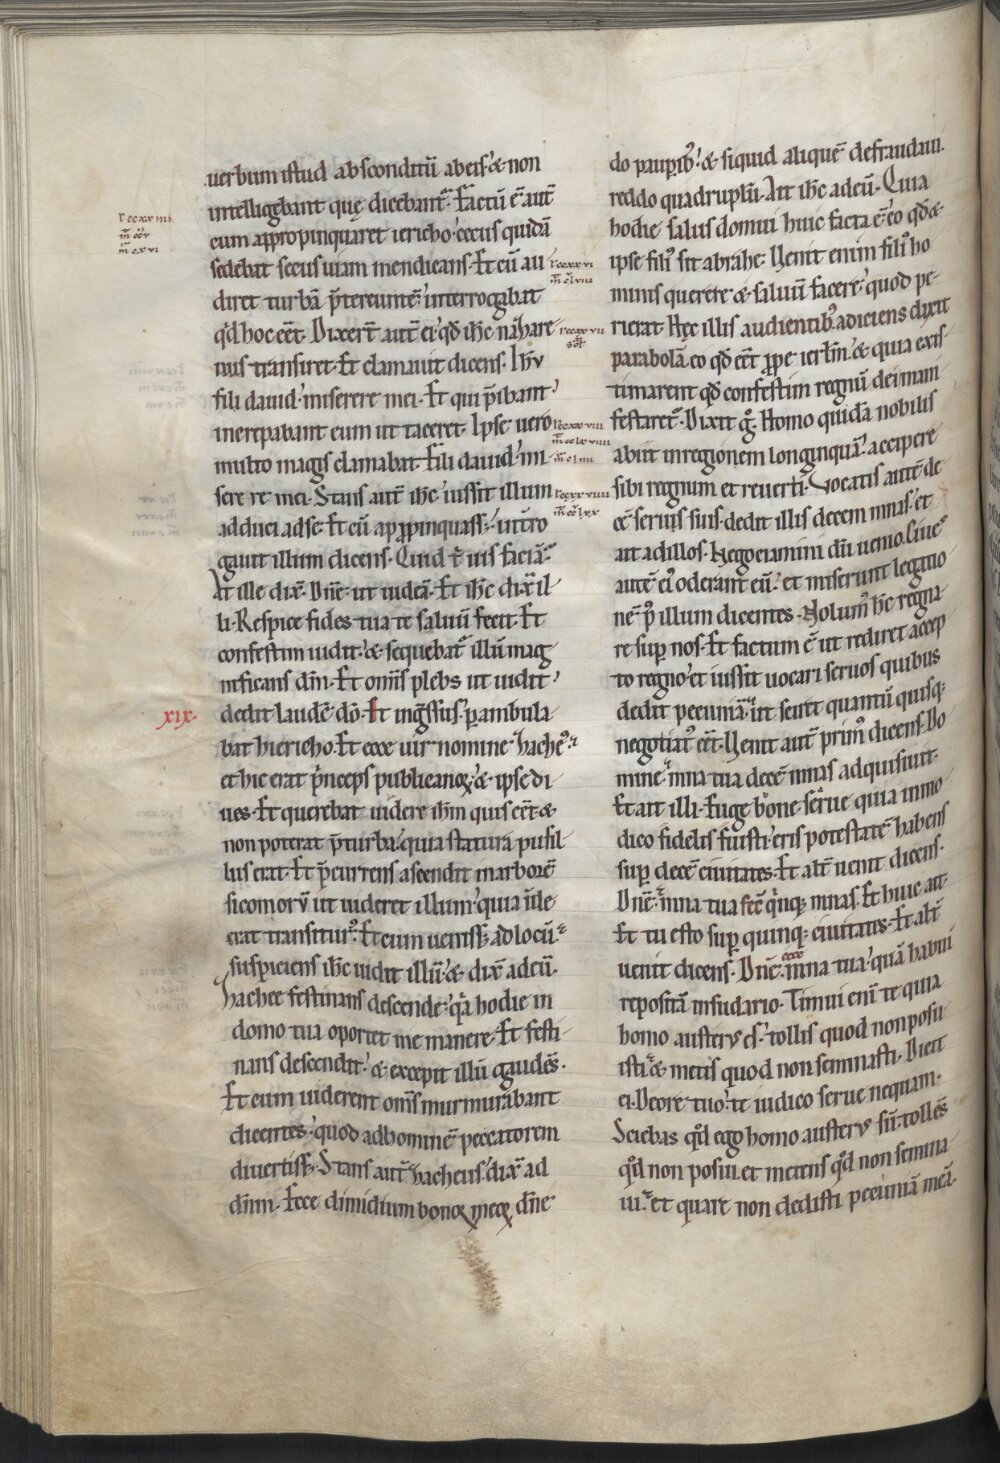 uerbum istud absconditũ ab eis. &̓ non
intelligebant quę dicebant᷑. Factũ ẽ aut̃
cum appropinquaret iericho. cecus quidã
sedebat secus uiam mendicans. Et cũ au
diret turbã p̃tereuntẽ. interrogabat
qd̓ hoc eẽt. Dixer̃t aut̃ ei. qd̓ ihc̃ naȝare
nus transiret. Et clamauit dicens. Ihũ
fili dauid. miserere mei. Et qui p̃ibant
increpabant eum ut taceret. Ipse uero
multo magis clamabat. Fili dauid. mi
sere re mei. Stans aut̃ ihc̃ iussit illum
adduci ad se. Et cũ appropinquass&. int̃ro
gauit illum dicens. Quid t̃ uis faciã.
At ille dix̃. Dnẽ. ut uideã. Et ihc̃ dix̃ il
li. Respice fides tua te saluũ fecit. Et
confestim uidit. & sequebat᷑ illũ mag
nificans dm̃. Et om̃s plebs ut uidit.
xix.
dedit laudẽ dõ. Et ings̃sus perambula
bat hiericho. Et ecce uir nomine ȝacheus.
et hic erat p̃nceps publicanorum. & ipse di
ues. Et querebat uidere ihm̃ quis eẽt. &
non poterat p̃ turba. quia statura pusil
lus erat. Et p̃currens ascendit in arborẽ
sicomorũ ut uideret illum. quia ĩde
erat transiturus. Et cum uenisset ad locũ.
suspiciens ihc̃ uidit illũ. & dix̃ ad eũ.
ȝachee festinans descende. qa̓ hodie in
domo tua oportet me manere. Et festi
nans descendit. & excepit illũ gaudẽs.
Et cum uiderent om̃s murmurabant
dicentes. quod ad hominẽ peccatorem
diuertiss&. Stans aut̃ ȝacheus. dix̃ ad
dñm. Ecce dimidium bonorum meorum dñe
do paupib᷒. & siquid aliquẽ defraudaui.
reddo quadruplũ. Ait ihc̃ ad eũ. Quia
hodie salus domui huic facta ẽ. eo qd̓ &
ipse filius sit abrahe. Venit enim filius ho
minis querere & saluũ facere. quod pe
rierat. Hęc illis audientib᷒. adiciens dixit
parabolã. eo qd̓ eẽt prope ierlm̃. & quia exis
timarent qd̓ confestim regnũ dei mani
festaret᷑. Dixit g̓. Homo quidã nobilis
abiit in regionem longinquã. accipere
sibi regnum et reuerti. Vocatis autẽ de
cẽ seruis suis. dedit illis decem mnas. et
ait ad illos. Negociamini dũ uenio. Ciues
autẽ ei᷒ oderant eũ. et miserunt legatio
nẽ p᷒ illum dicentes. Nolum᷒ hc̃ regna
re super nos. Et factum ẽ ut rediret accep
to regno. et iussit uocari seruos quibus
dedit pecuniã. ut sciret quantũ quisq;
negotiat᷒ eẽt. Venit aut̃ prim᷒ dicens. Do
mine. mna tua decẽ mnas adquisiuit.
Et ait illi. Euge bone serue quia in mo
dico fidelis fuisti. eris potestatẽ habens
super decẽ ciuitates. Et alt̃ uenit dicens.
Dnẽ. mna tua fec̃ quinq; mnas. Et huic ait.
Et tu esto super quinq; ciuitatis. Et alt̃
uenit dicens. Dnẽ. ecce mna tua. quã habui
repositã in sudario. Timui enĩ te quia
homo auster᷒ es. tollis quod non posu
isti. & metis quod non seminasti. Dicit
ei. De ore tuo. te iudico serue nequam.
Sciebas qd̓ ego homo auster᷒ sũ. tollẽs
qd̓ non posui. et metens qd̓ non semina
ui. et quare non dedisti pecuniã meã.